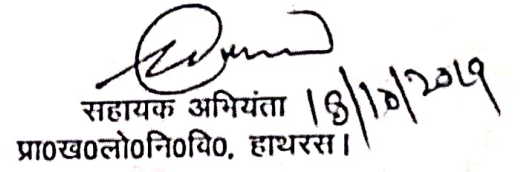 सहायक अभियंता 18/10/2019
प्रा०ख०लो०नि०वि०, हाथरस।